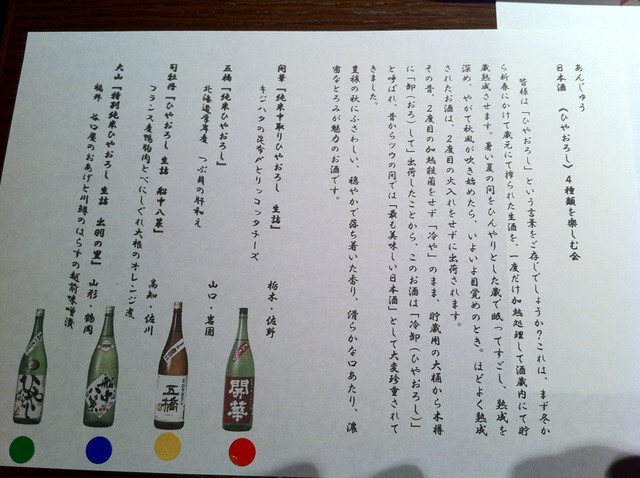 あんじゅう
日本酒 《ひやおろし》4種類を楽しむ会
皆様は「ひやおろし」という言葉をご存じでしょうか？これは、まず冬か
ら新春にかけて蔵元にて搾られた生酒を、一度だけ加熱処理して酒蔵内にて貯
蔵熟成させます。暑い夏の間をひんやりとした蔵で眠ってすごし、熟成を
深め、やがて秋風が吹き始めたら、いよいよ目覚めのとき。ほどよく熟成
されたお酒は、2度目の火入れをせずに出荷されます。
その昔、2度目の加熱殺菌をせず「冷や」のまま、貯蔵用の大桶から木樽
に「卸（おろ）して」出荷したことから、このお酒は「冷卸（ひやおろし）」
と呼ばれ、昔からツウの間では「最も美味しい日本酒」として大変珍重されて
きました。
豊穣の秋にふさわしい、穏やかで落ち着いた香り、滑らかな口あたり、濃
密なとろみが魅力のお酒です。
開華『純米中取りひやおろし 生詰』 栃木・佐野
キジハタの昆布〆とリコッタチーズ
五橋『純米ひやおろし』 山口・岩国
北海道厚岸産 つぶ貝の肝和え
司牡丹『ひやおろし 生詰 船中八策』 高知・佐川
フランス産鴨胸肉とべにしぐれ大根のオレンジ煮
大山『特別純米ひやおろし 生詰 出羽の里』 山形・鶴岡
福井 谷口屋のおあげと川鱒のはらすの越前味噌漬
開華
五橋
船中八策
ひやおろし